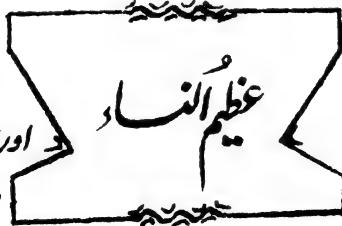 عظیمُ النساء
اور